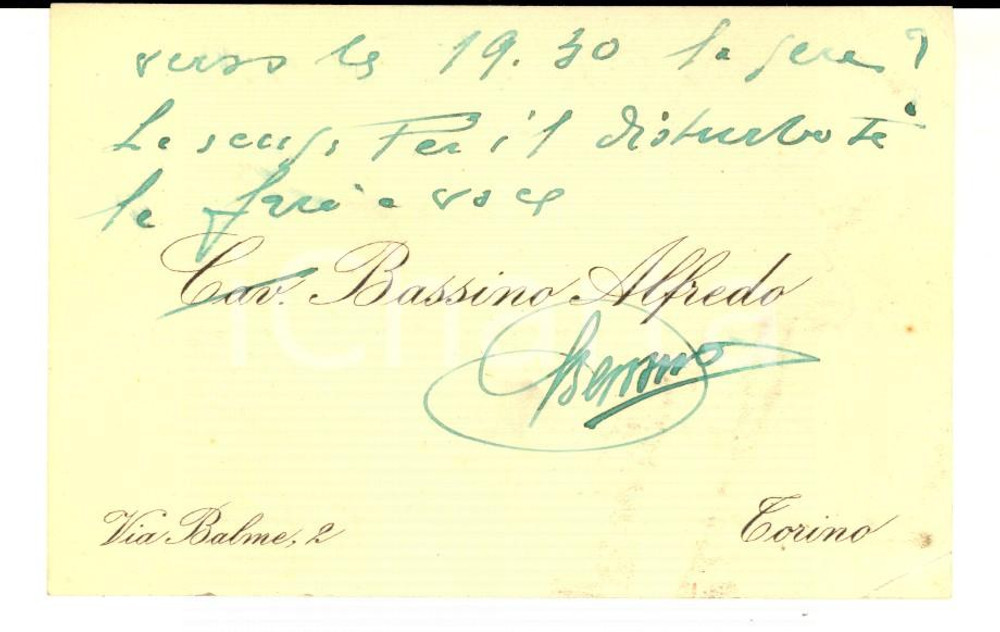 verso le 19.30 la sera?
La scusi Per il disturbo
le farò a voce
Cav. Bassino Alfredo
Bassino
Via Balme, 2
Torino